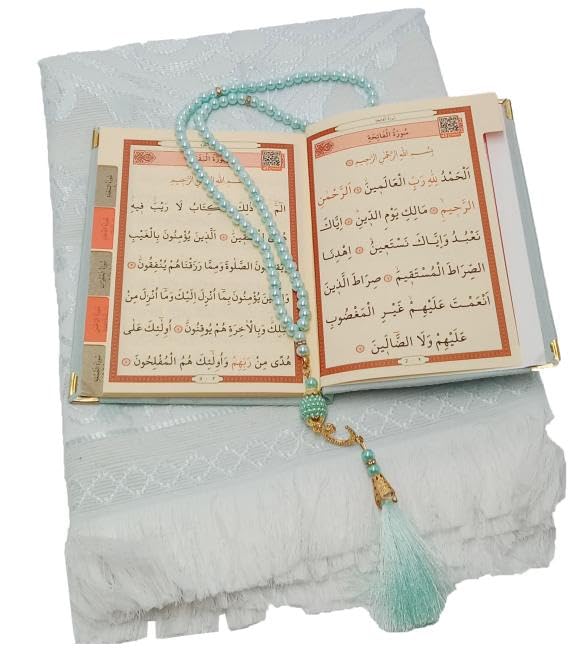 سُورَةُ الْفَاتِحَةِ
بِسْمِ اللّٰهِ الرَّحْمٰنِ الرَّحِيمِ
اَلْحَمْدُ لِلّٰهِ رَبِّ الْعَالَمِينَ اَلرَّحْمٰنِ
الرَّحِيمِ مَالِكِ يَوْمِ الدِّينِ اِيَّاكَ
نَعْبُدُ وَاِيَّاكَ نَسْتَعِينُ اِهْدِنَا
الصِّرَاطَ الْمُسْتَقِيمَ صِرَاطَ الَّذِينَ
اَنْعَمْتَ عَلَيْهِمْ غَيْرِ الْمَغْضُوبِ
عَلَيْهِمْ وَلَا الضَّالِّينَ
سُورَةُ
بِسْمِ اللّٰهِ الرَّحْمٰنِ الرَّحِيمِ
الم ذٰلِكَ الْكِتَابُ لَا رَيْبَ فِيهِ
اَلَّذِينَ يُؤْمِنُونَ بِالْغَيْبِ
الصَّلٰوةَ وَمِمَّا رَزَقْنَاهُمْ يُنْفِقُونَ
يُؤْمِنُونَ بِمَا اُنْزِلَ اِلَيْكَ وَمَا اُنْزِلَ مِنْ
قَبْلِكَ وَبِالْاٰخِرَةِ هُمْ يُوقِنُونَ اُولٰئِكَ عَلٰى
هُدًى مِنْ رَبِّهِمْ وَاُولٰئِكَ هُمُ الْمُفْلِحُونَ